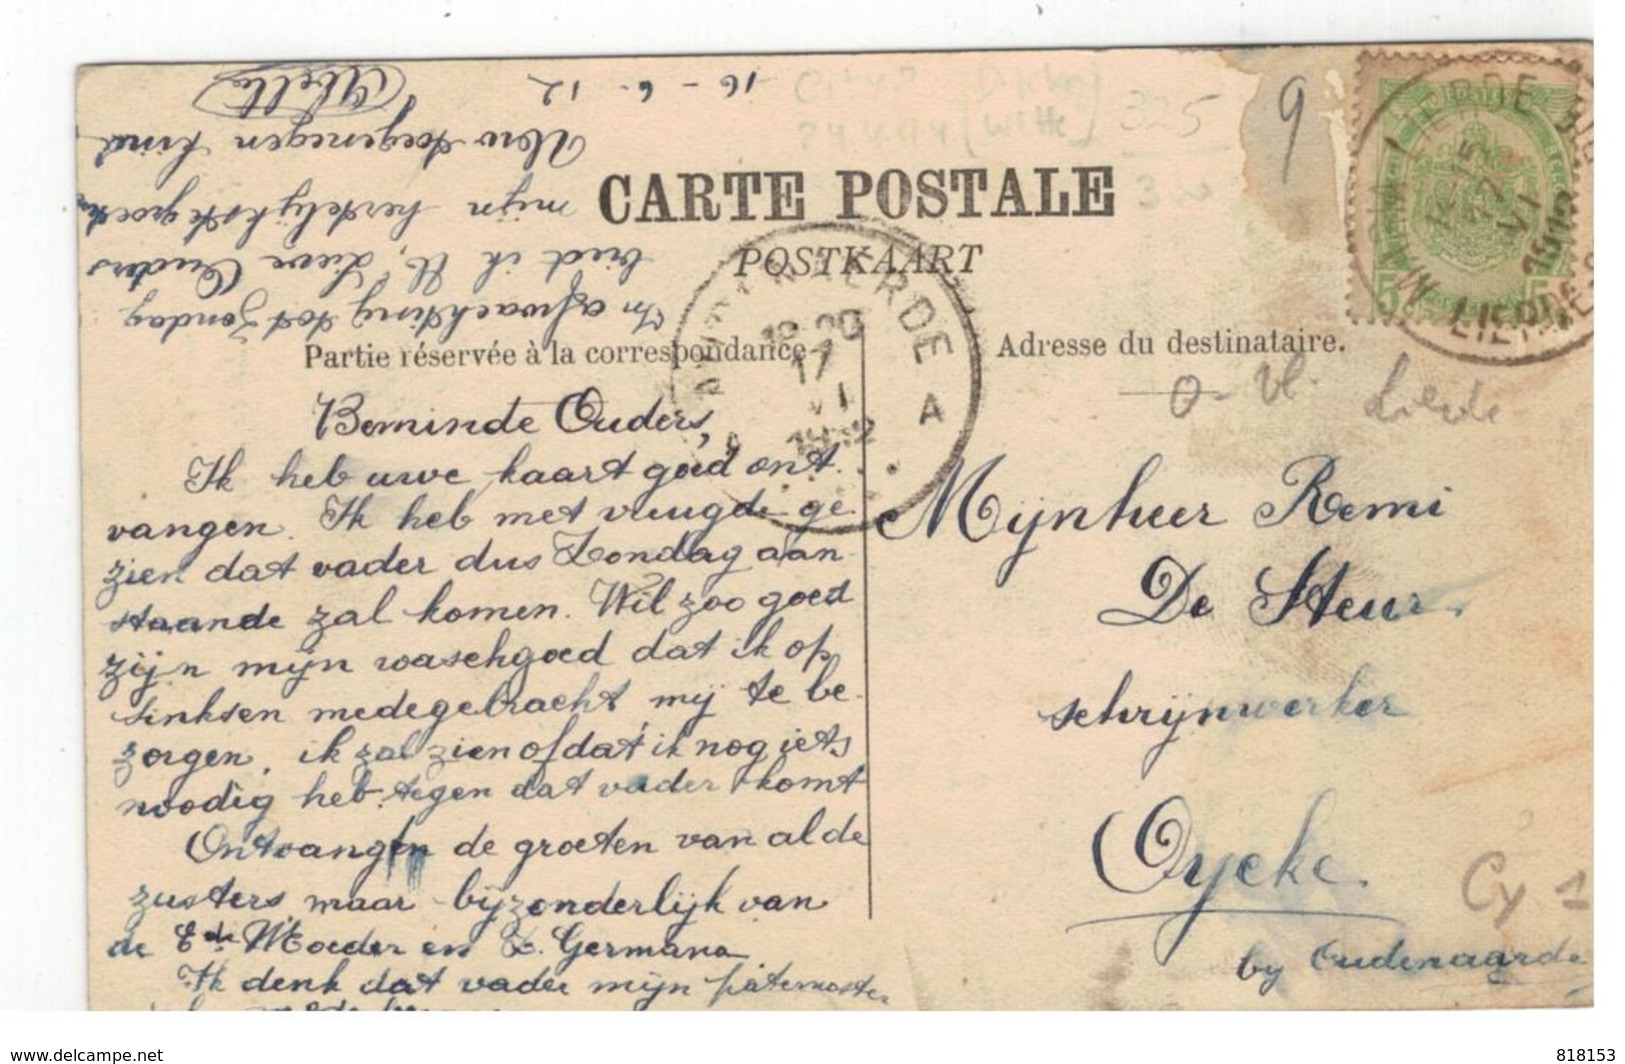 CARTE POSTALE
POSTKAART
Partie réservée à la correspondance
Adresse du destinataire.
Beminde Ouders,
Ik heb uwe kaart goed ont.
vangen. Ik heb met vreugde ge.
zien dat vader dus Zondag aan-
staande zal komen. Wil zoo goed
zijn mijn waschgoed dat ik op
sinksen medegebracht mij te be-
zorgen, ik zal zien of dat ik nog iets
noodig heb tegen dat vader komt
Ontvangen de groeten van al de
zusters maar bijzonderlijk van
de Ede Moeder en Z. Germana.
Ik denk dat vader mijn paternoster
In afwachting tot Zondag
bied ik U, Lieve Ouders
mijn hertelijkste groeten
Uew toegenegen kind
16 - 6 - 12
Mijnheer Remi
De Steur.
schrijnwerker
Oycke
by Oudenaarde
O-Vl. Lierde
325
9
Cy 1
17
VI
1912
A
LIERDE
www.delcampe.net
818153